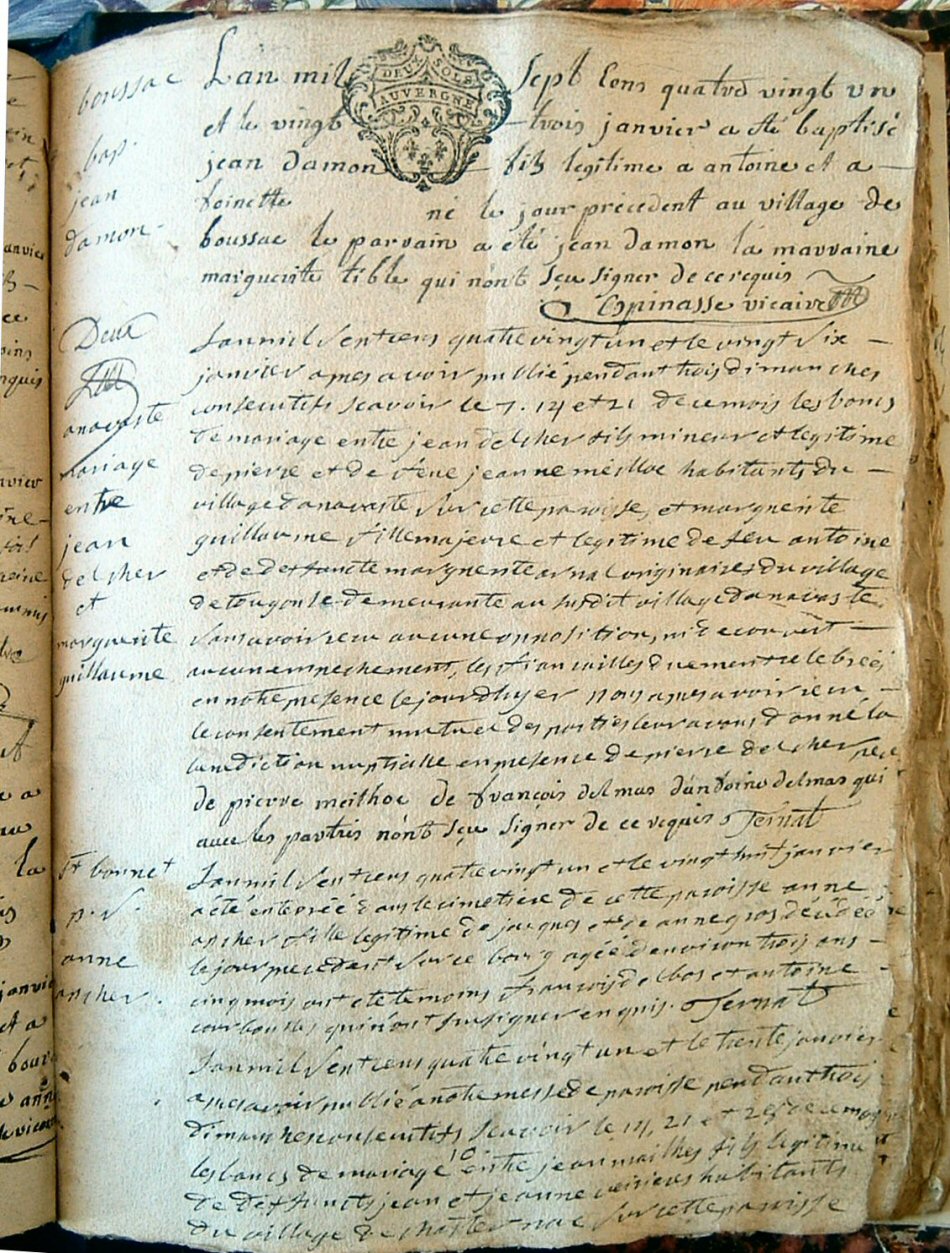 boussac
bap.
jean
damon.
Lan mil Sept Cens quatre vingt un
DEUX SOLS
AUVERGNE
et le vingt trois janvier a eté baptisé
jean damon fils legitime a antoine et a
toinette né le jour precedent au village de
boussac le parrain a été jean damon la marraine
marguerite tible qui nont sçu signer de ce requis
Espinasse vicaire
Deux
anavaste
mariage
entre
jean
delcher
et
marguerite
guillaume
Lan mil sept cens quatre vingt un et le vingt six
janvier apres avoir publié pendant trois dimanches
consecutifs scavoir le 7. 14 et 21 de ce mois les bancs
de mariage entre jean delcher fils mineur et legitime
de pierre et de jeanne meilhoc habitants du
village danavaste sur cette paroisse, et marguerite
guillaume fille majeure et legitime de feu antoine
et de deffuncte marguerite originaires du village
de demeurante au susdit village danavaste
sans avoir reçu aucune opposition, ni decouvert
aucun empechement, les fiançailles duement celebrées
en notre presence le jour dhyer nous apres avoir reçu
le consentement mutuel des parties leur avons donné la
benediction nuptialle en presence de pierre delcher pere
de pierre meilhoc de françois delmas dantoine delmas qui
avec les parties nont sçu signer de ce requis fernat
st bonnet
p. s.
anne
archer.
Lan mil sept cens quatre vingt un et le vingt huit janvier
a été enterrée dans le cimetiere de cette paroisse anne
archer fille legitime de jacques et de anne gros décédée
le jour precedent sur ce bourg agée denviron trois ans
cinq mois ont eté temoins françois delbos et antoine
qui nont sçu signer enquis. fernat
Lan mil sept cens quatre vingt un et le trente janvier
apres avoir publié a notre messe de paroisse pendant trois
dimanches consecutifs scavoir le 14, 21 et 28 de ce mois
les bancs de mariage entre jean mailhes fils legitime
de deffunts jean et jeanne habitants
du village de sur cette paroisse